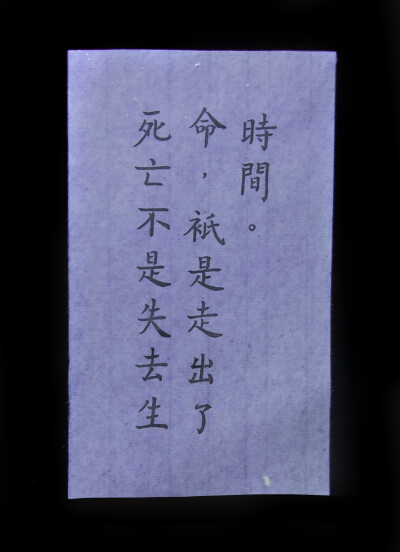 死亡不是失去生
命，祇是走出了
時間。